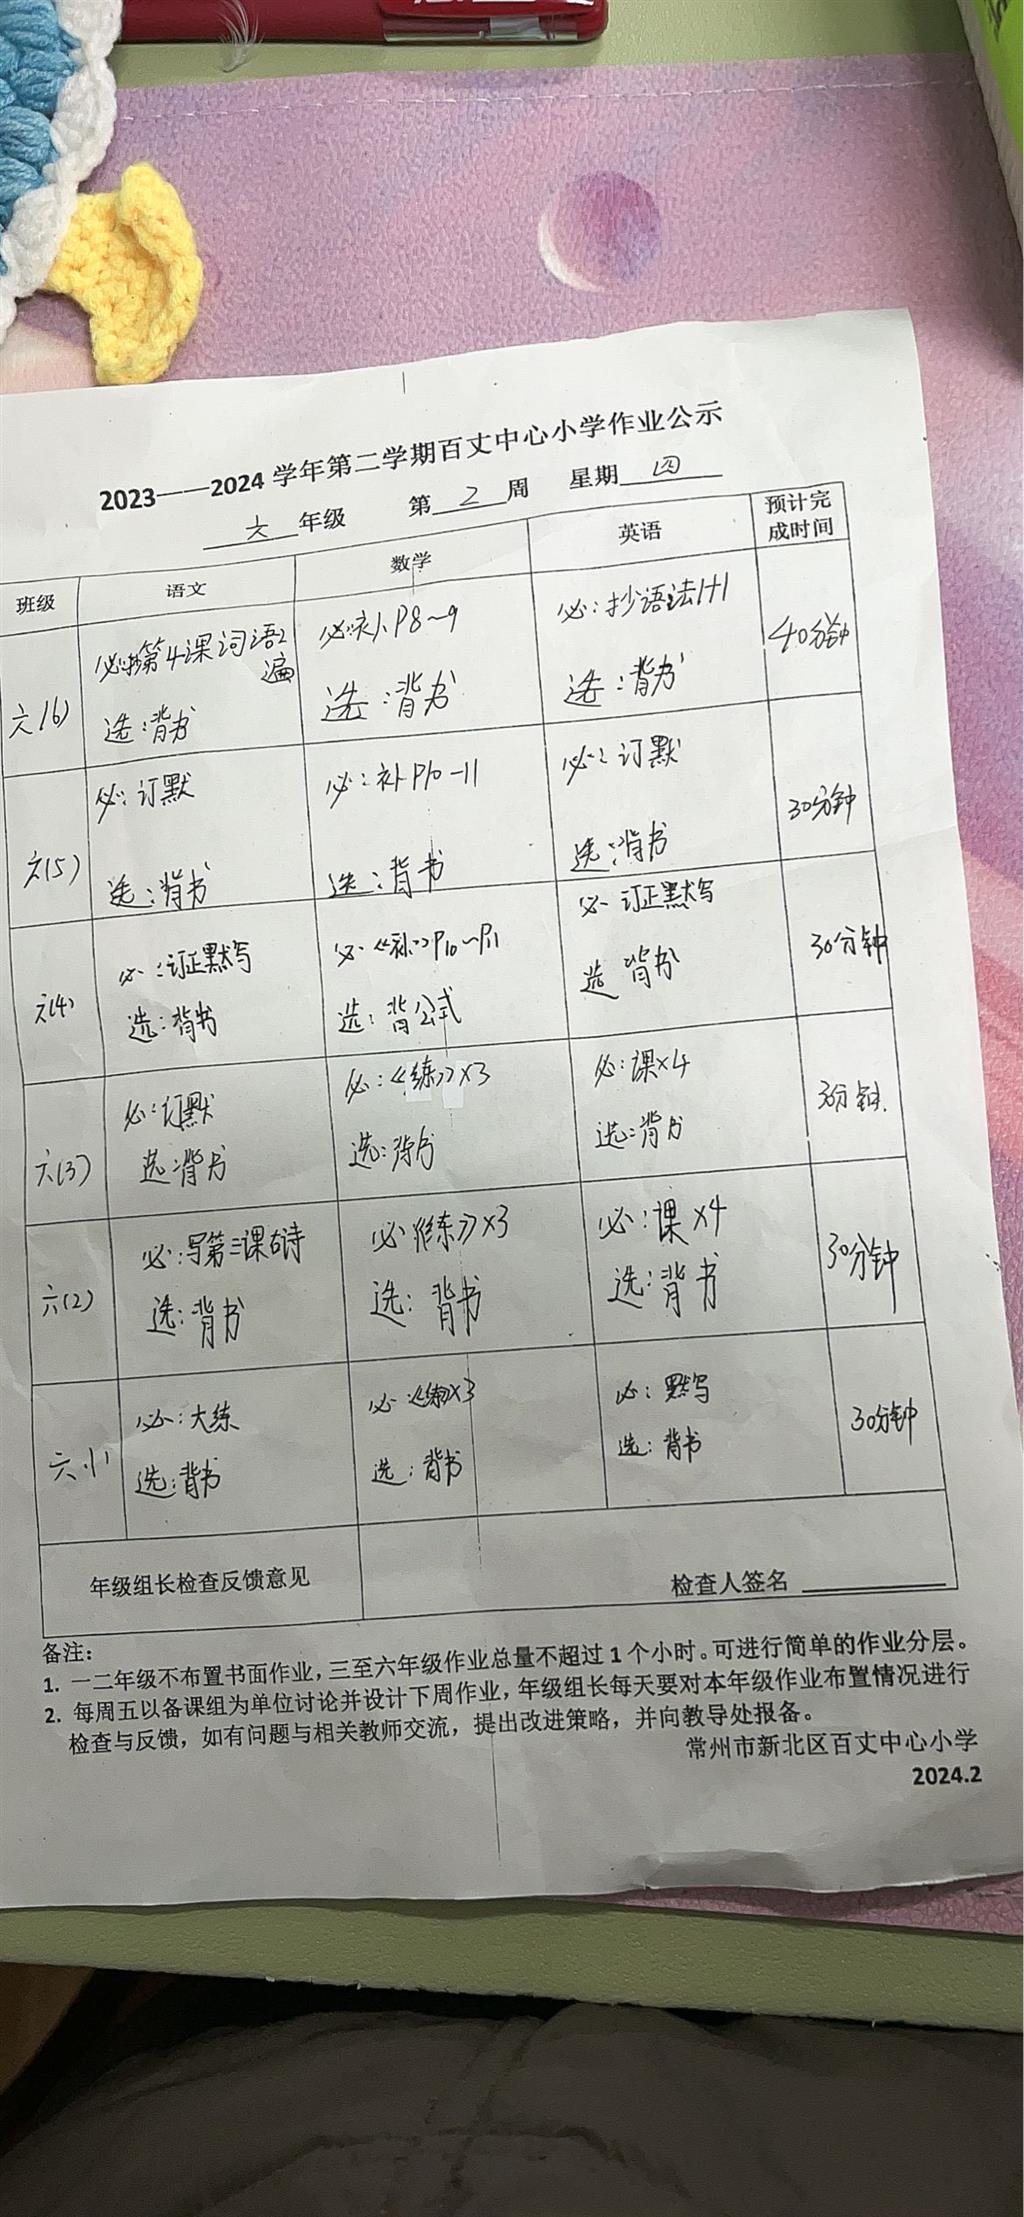 2023——2024 学年第二学期百丈中心小学作业公示
六 年级 第 2 周 星期 四
班级 语文 数学 英语 预计完成时间
六(6)
必:抄第4课词语2遍
选:背书
必:补P8~9
选:背书
必:抄语法1+1
选:背书
40分钟
六(5)
必:订默
选:背书
必:补P10-11
选:背书
必:订默
选:背书
30分钟
六(4)
必:订正默写
选:背书
必:《补》P10~P11
选:背公式
必 订正默写
选 背书
30分钟
六(3)
必:订默
选:背书
必:《练》×3
选:背书
必:课×4
选:背书
30分钟.
六(2)
必:写第三课古诗
选:背书
必:《练》×3
选:背书
必:课×4
选:背书
30分钟
六(1)
必:大练
选:背书
必:《练》×3
选:背书
必:默写
选:背书
30分钟
年级组长检查反馈意见
检查人签名
备注:
1. 一二年级不布置书面作业,三至六年级作业总量不超过1个小时。可进行简单的作业分层。
2. 每周五以备课组为单位讨论并设计下周作业,年级组长每天要对本年级作业布置情况进行
检查与反馈,如有问题与相关教师交流,提出改进策略,并向教导处报备。
常州市新北区百丈中心小学
2024.2